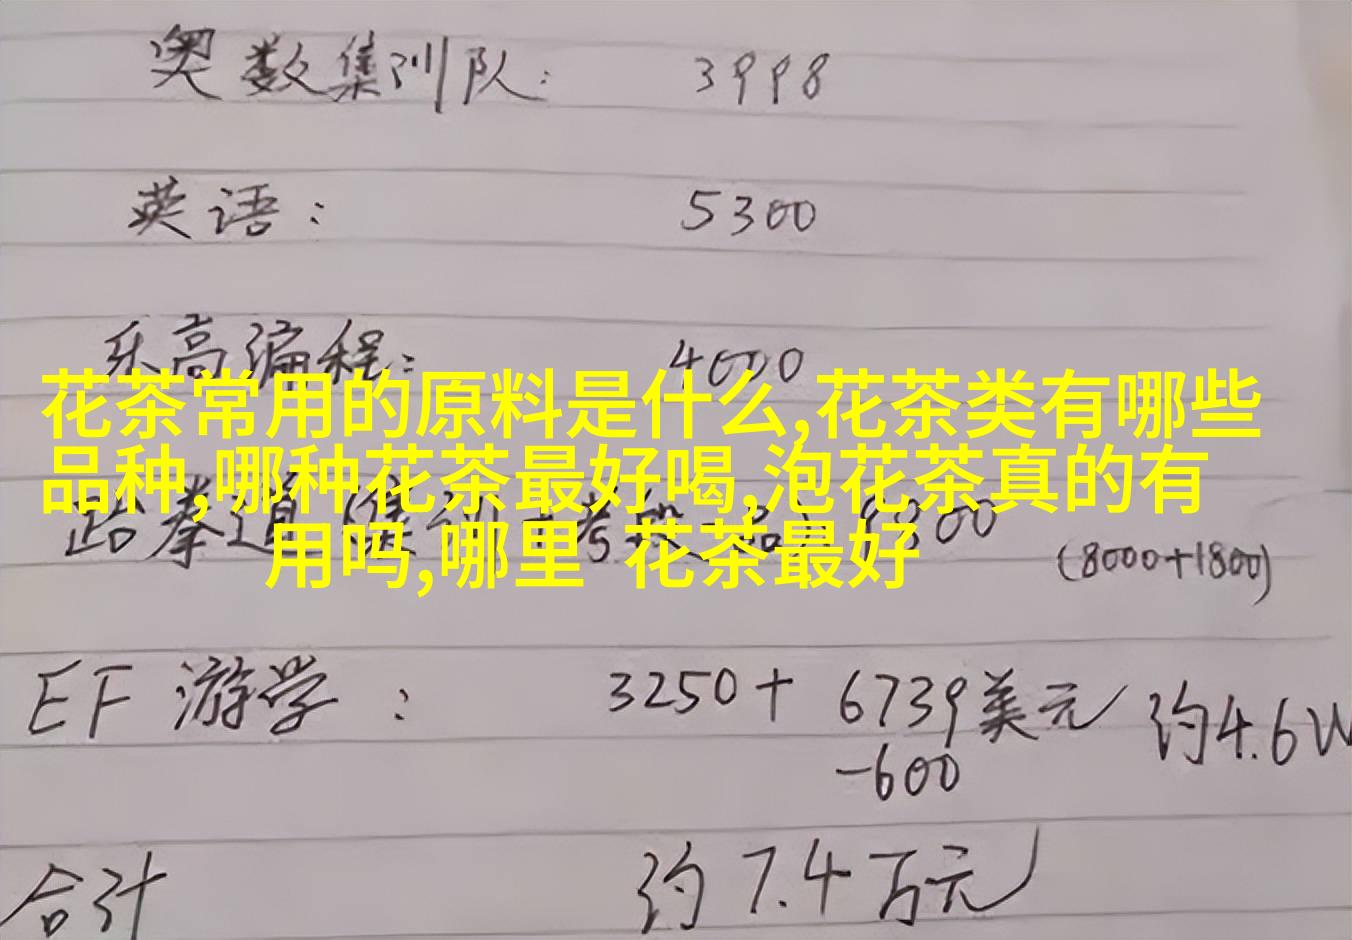 奥数集训队： 3998
英语： 5300
乐高编程： 4000
花茶常用的原料是什么,花茶类有哪些
品种,哪种花茶最好喝,泡花茶真的有
用吗,哪里 花茶最好
跆拳道 9800
(8000+1800)
EF 游学： 3250+ 6739美元 约4.6W
-600
合计 约7.4万元